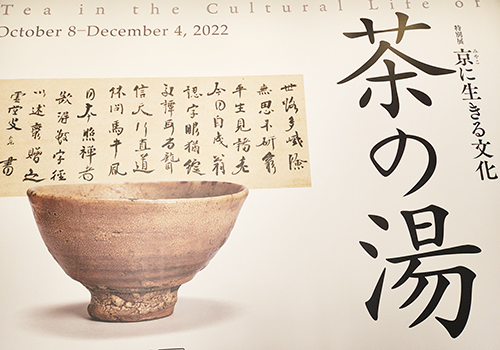 Tea in the Cultural Life of
October 8–December 4, 2022
特別展
京に生きる文化
みやこ
茶の湯
世路多巇險
無思不研窮
平生見諸老
今日自成翁
認字眼猶綻
交譚耳尚聾
信天行直道
休問馬牛風
日本照禪者
欲得數字徑
以述懷贈之